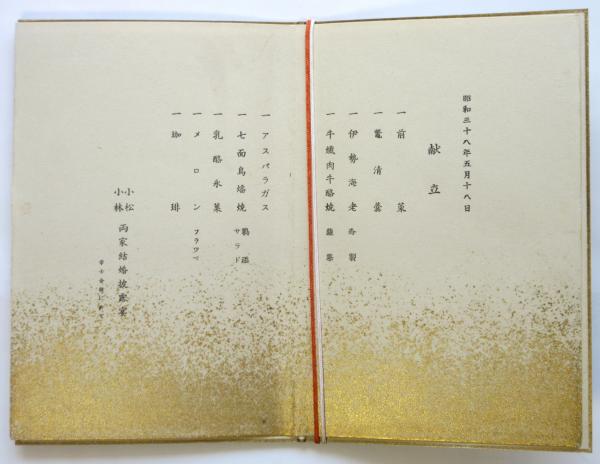 昭和三十八年五月十八日
献立
一 前菜
一 鼈清羹
一 伊勢海老
一 牛繊肉牛酪焼
一 アスパラガス
一 七面鳥熻焼 サラド
一 乳酪氷菓
一 メロン フラッペ
一 珈琲
小松
小林
両家結婚披露宴